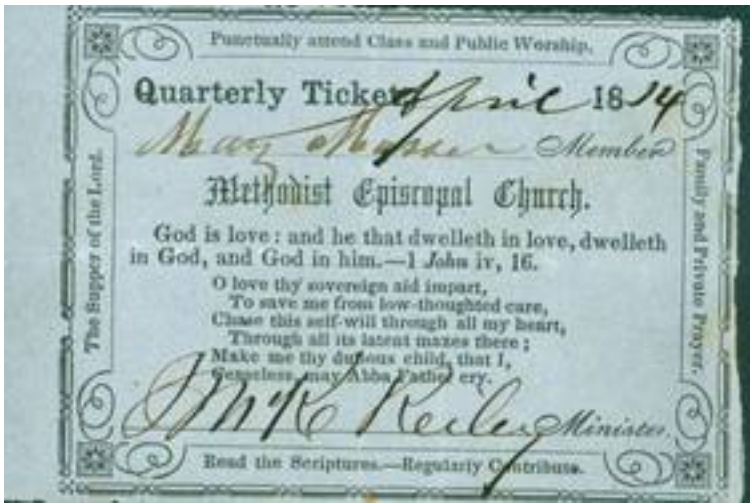 Punctually attend Class and Public Worship.
Quarterly Ticket April 18
Mary Member
Methodist Episcopal Church.
God is love: and he that dwelleth in love, dwelleth
in God, and God in him.—1 John iv, 16.
O love thy sovereign aid impart,
To save me from low-thoughted care,
Chase this self-will through all my heart,
Through all its latent mazes there;
Make me thy duteous child, that I,
Ceaseless, may Abba Father cry.
J McK Reiley Minister.
Read the Scriptures.—Regularly Contribute.
The Supper of the Lord.
Family and Private Prayer.